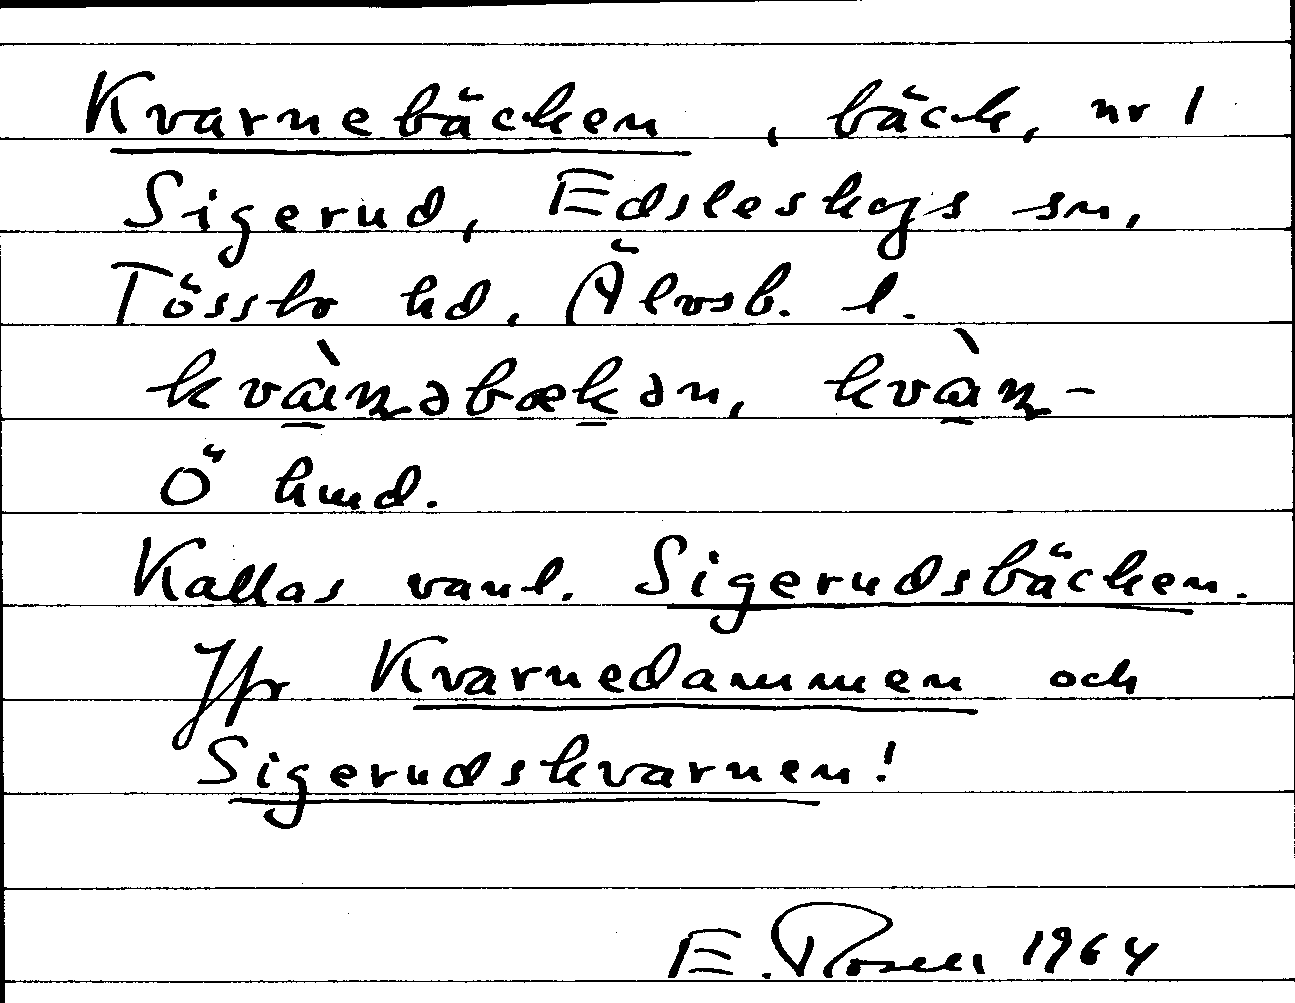 Kvarnebäcken, bäck, nr 1
Sigerud, Edsleskogs sn,
Tössbo hd, Älvsb. l.
kvà̱ɳəbæḵən, kvà̱ɳ-
Ö hmd.
Kallas vanl. Sigerudsbäcken.
Jfr Kvarnedammen och
Sigerudskvarnen!
E. Rosell 1964